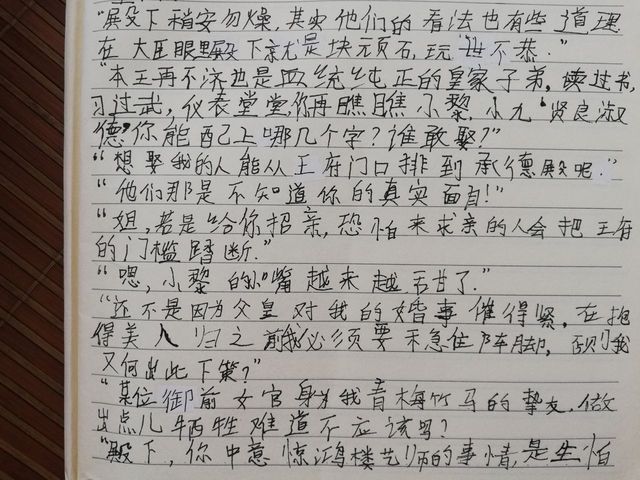 "殿下稍安勿燥，其实他们的看法也有些道理
在大臣眼里殿下就是块顽石，玩世不恭。"
"本王再不济也是血统纯正的皇家子弟，读过书，
习过武，仪表堂堂，你再瞧瞧小黎，小九"贤良淑
德"你能配上哪几个字？谁敢娶？"
"想娶我的人能从王府门口排到承德殿呢。"
"他们那是不知道你的真实面目！"
"姐，若是给你招亲，恐怕来求亲的人会把王府
的门槛踏断。"
"嗯，小黎的小嘴越来越舌甘了。"
"还不是因为父皇对我的婚事催得紧，在抱
得美人归之前我必须要稳住阵脚，否则我
又何出此下策？"
"某位御前女官身为我青梅竹马的挚友，做
出点儿牺牲难道不应该吗？
"殿下，你中意惊鸿楼艺师的事情，是生怕